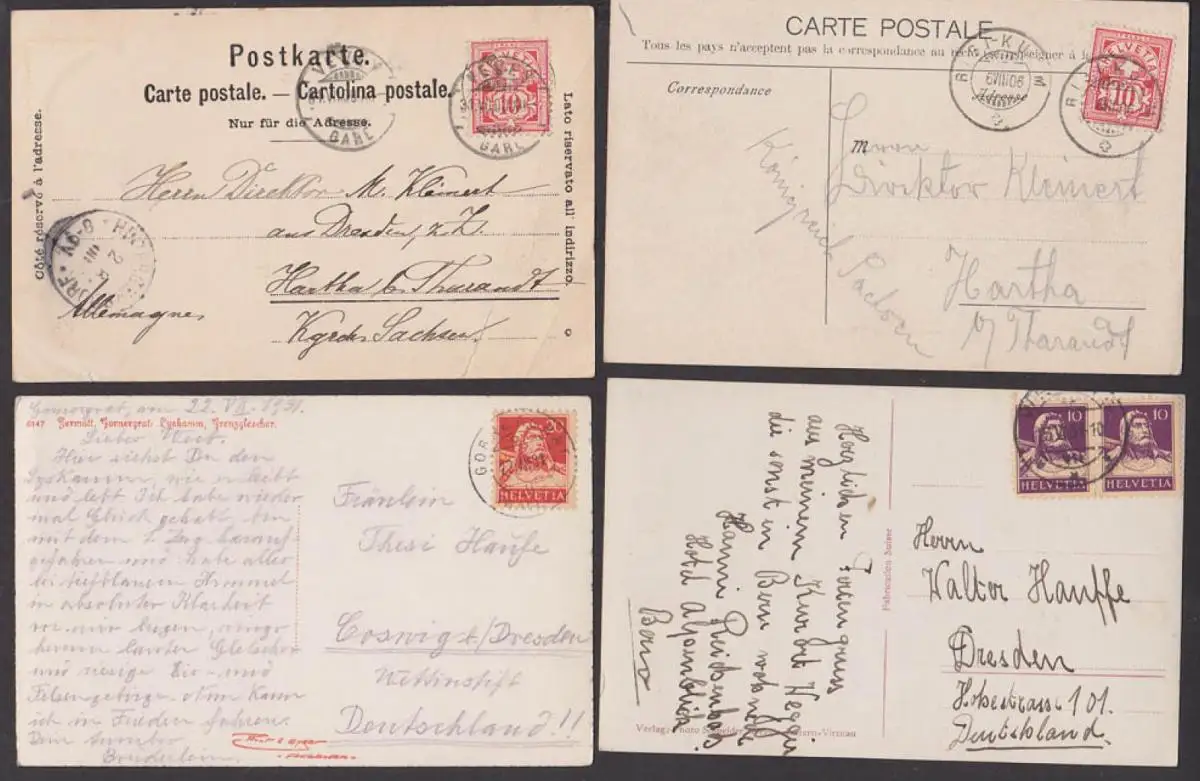 Postkarte.
Carte postale. — Cartolina postale.
Nur für die Adresse.
Côté réservé à l'adresse.
Lato riservato all' indirizzo.
VEVEY
GARE
HELVETIA
10
VEVEY
GARE
Herrn Direktor M. Kleinert
aus Dresden, z. Z.
Hartha b. Tharandt
Kgrch. Sachsen
Allemagne
CARTE POSTALE
Tous les pays n'acceptent pas la correspondance au
Correspondance
Adresse
RIGI-KULM
6 VIII 06
HELVETIA
10
Herrn
Direktor Kleinert
Hartha
b/ Tharandt
Königreich Sachsen
Gornergrat, am 22. VII. 1931.
6147 Zermatt, Gornergrat. Lyskamm, Grenzgletscher.
Hier siehst Du den
Lyskamm, wie er leibt
und lebt. Ich habe wieder
mal Glück gehabt, bin
mit dem 1. Zug herauf-
gefahren und habe alles
bei tiefblauem Himmel
in absoluter Klarheit
vor mir liegen, rings-
herum lauter Gletscher
und riesige Eis- und
Felsengebirge. Nun kann
ich in Frieden fahren.
Dein
Brüderlein.
20
HELVETIA
Fräulein
Thesi Haufe
Coswig b/Dresden
Wettinstift
Deutschland!!
Herzlichen Feriengruss
aus meinem Kurort Weggis
die sonst in Bern wohnhafte
Hanni Reichenbach
Hotel Alpenblick
Bern
Fabrication Suisse
10
HELVETIA
10
HELVETIA
Herrn
Walter Hauffe
Dresden
101.
Deutschland.
Verlag Photo